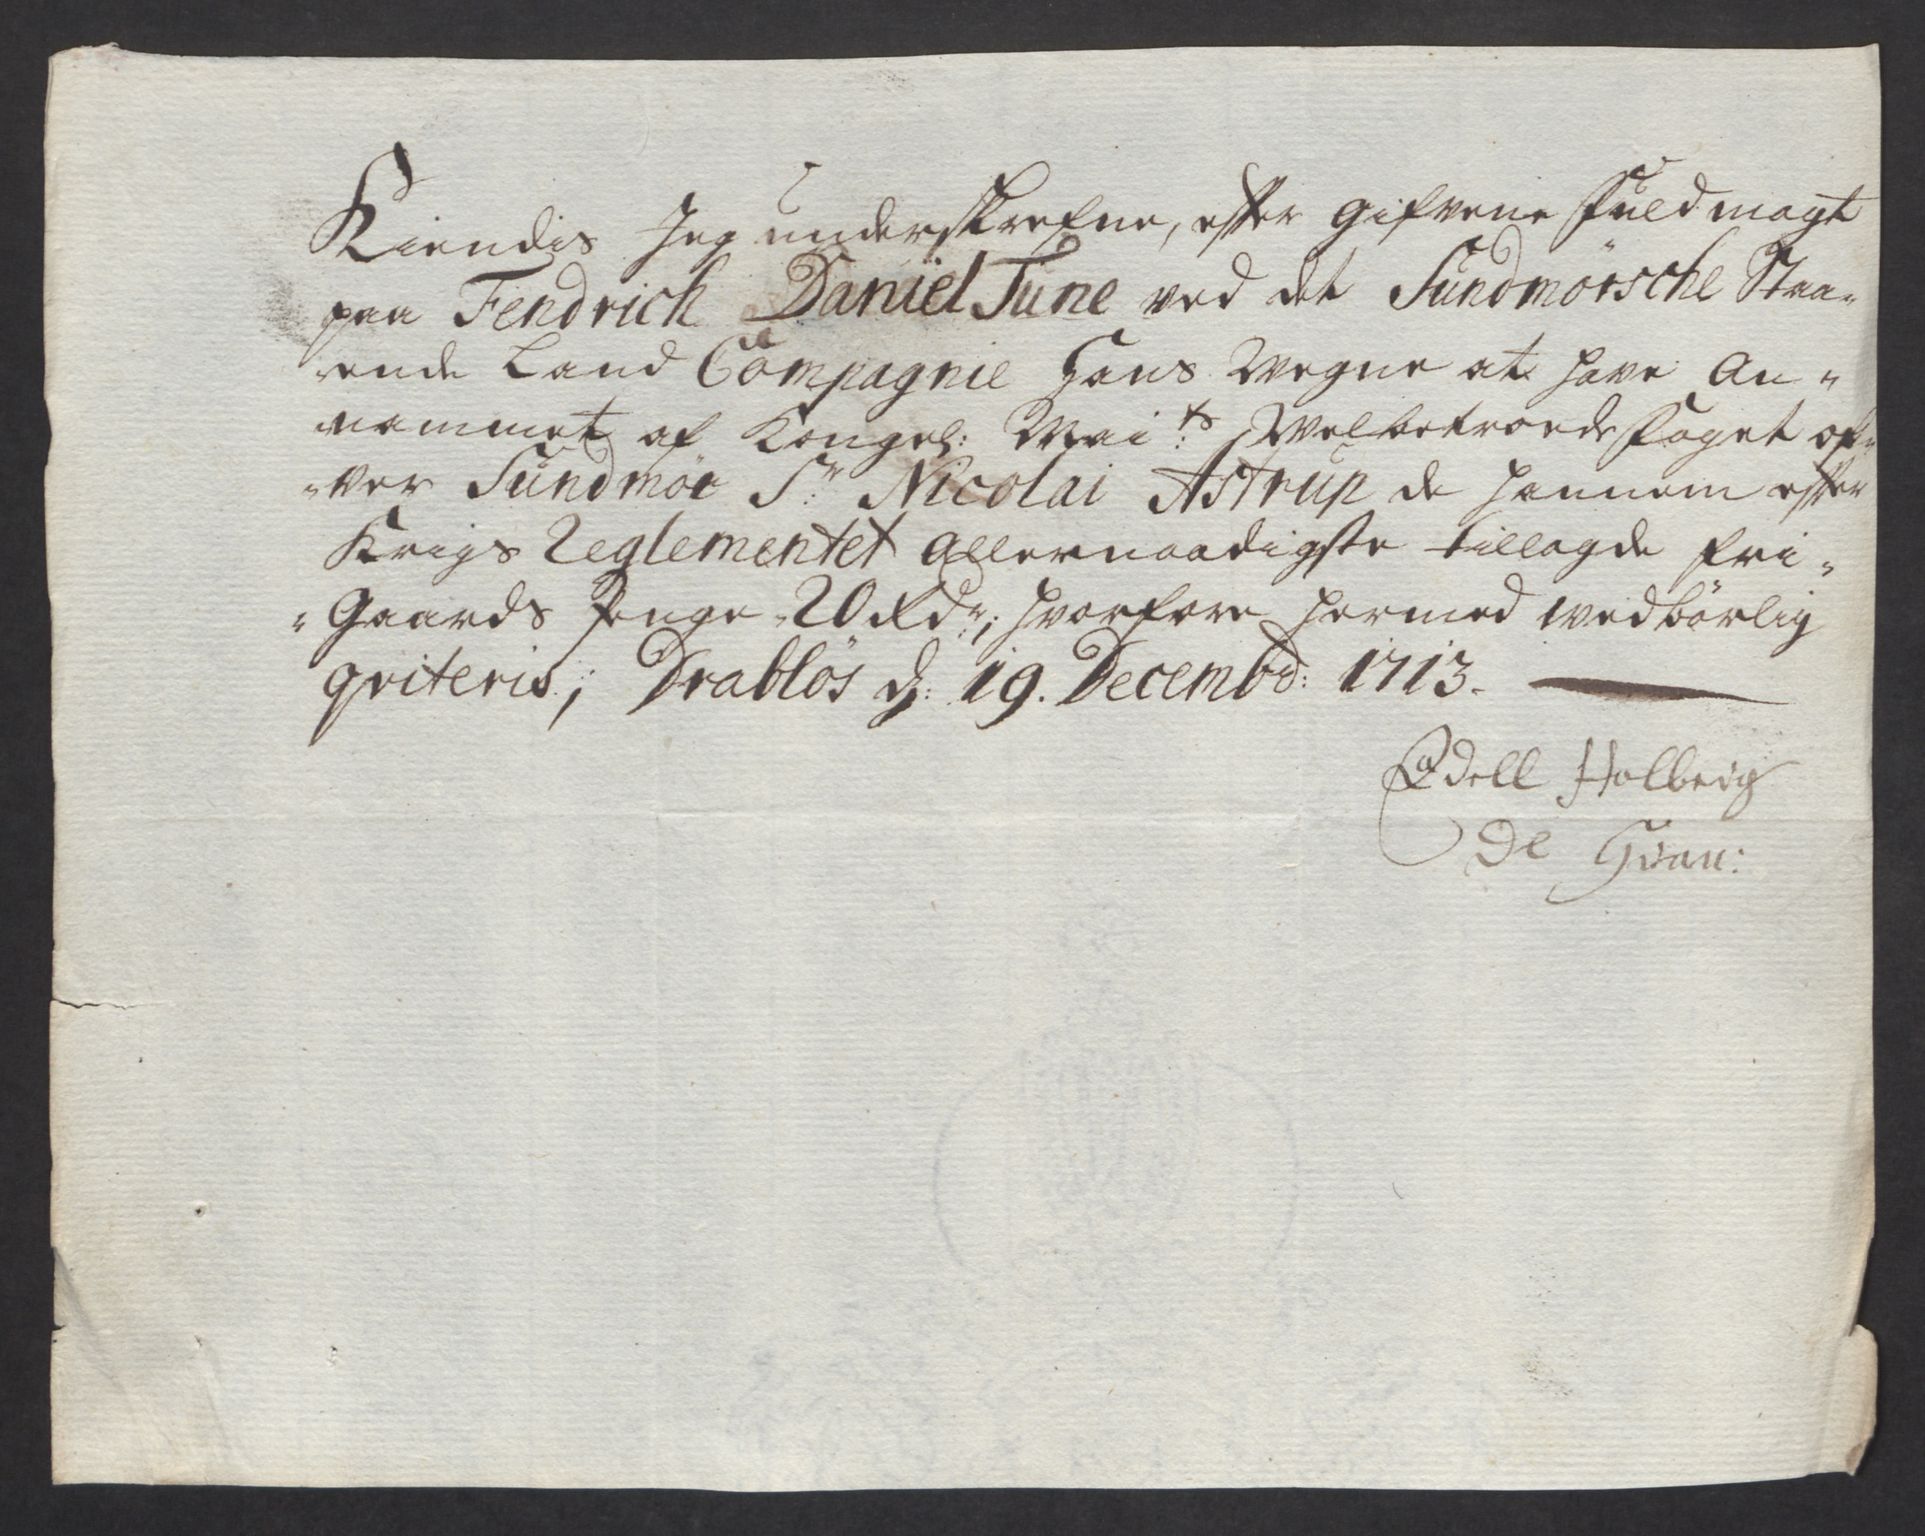 Kiendis Jeg underskrefne, efter gifvene Fuldmagt
paa Fendrich Daniel Tune ved det Sundmørsche Staa-
ende Land Compagnie Hans Wegne at have An-
nammet af Kongel: Mai:ts Welbetroede Foget of-
-ver Sundmør Sr: Nicolai Astrup de hannem efter
Krigs Reglementet allernaadigste tillagde fri-
-Gaards Penge 20 Rdr:, hvorfore hermed wedbørlig
qviteris; Drabløs d: 19. Decembr: 1713.
Edell Holberg
De